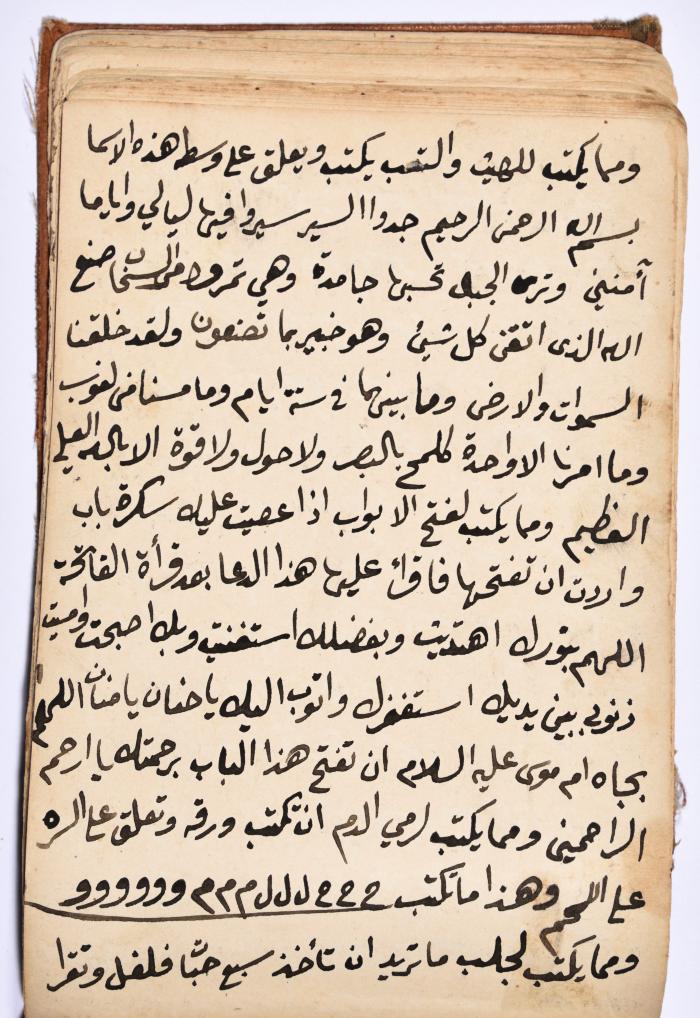 ومما يكتب للهيث والتعب يكتب ويعلق على وسطه هذه الاسما
بسم الله الرحمن الرحيم جدوا السير سيروا فيها ليالي واياما
آمنين وترى الجبال تحسبها جامدة وهي تمر مر السحاب صنع
الله الذى اتقن كل شيئ وهو خبير بما تصنعون ولقد خلقنا
السموات والارض وما بينهما في ستة ايام وما مسنا من لغوب
وما امرنا الا واحدة كلمح بالبصر ولا حول ولا قوة الا بالله العلي
العظيم ومما يكتب لفتح الابواب اذا عصيت عليك سكرة باب
واردت ان تفتحها فاقرأ عليها هذا الدعا بعد قرأة الفاتحة
اللهم بنورك اهتديت وبفضلك استغنيت وبك اصبحت وامسيت
ذنوبي بين يديك استغفرك واتوب اليك يا حنان يا منان اللهم
بجاه ام موسى عليه السلام ان تفتح هذا الباب برحمتك يا ارحم
الراحمين ومما يكتب لرمي الدم ان تكتب ورقه وتعلق على السره
على اللحم وهذا ما تكتب ح ح ح ل ل ل م م م و و و و و و
ومما يكتب لجلب ما تريد ان تأخذ سبع حبّا فلفل وتقرا